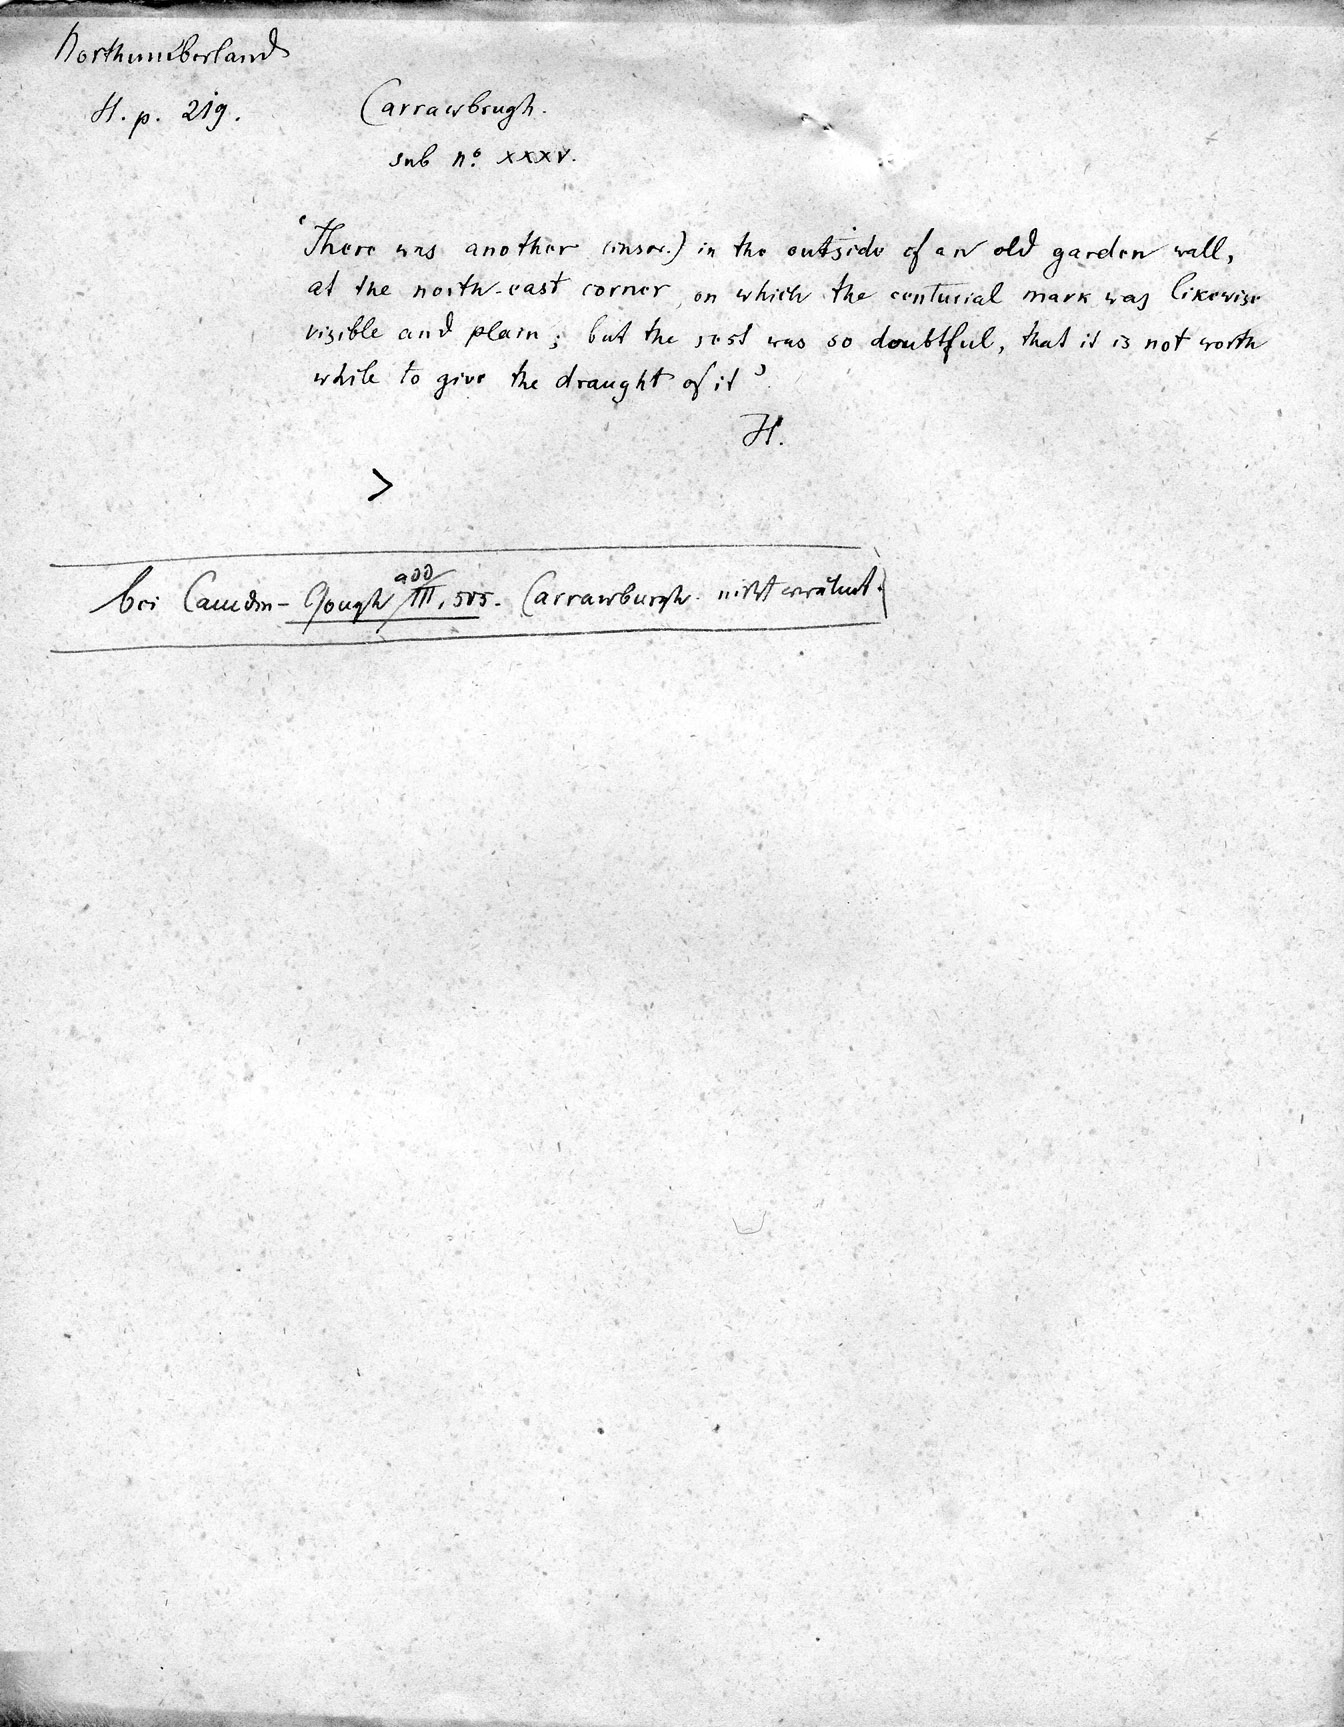 Northumberland
H. p. 219.
Carrawbrugh.
sub nº xxxv.
'There was another (inscr.) in the outside of an old garden wall,
at the north-east corner, on which the centurial mark was likewise
visible and plain; but the rest was so doubtful, that it is not worth
while to give the draught of it'.
H.
>
add
bei Camden-Gough III, 505. Carrawburgh. nicht erwähnt.